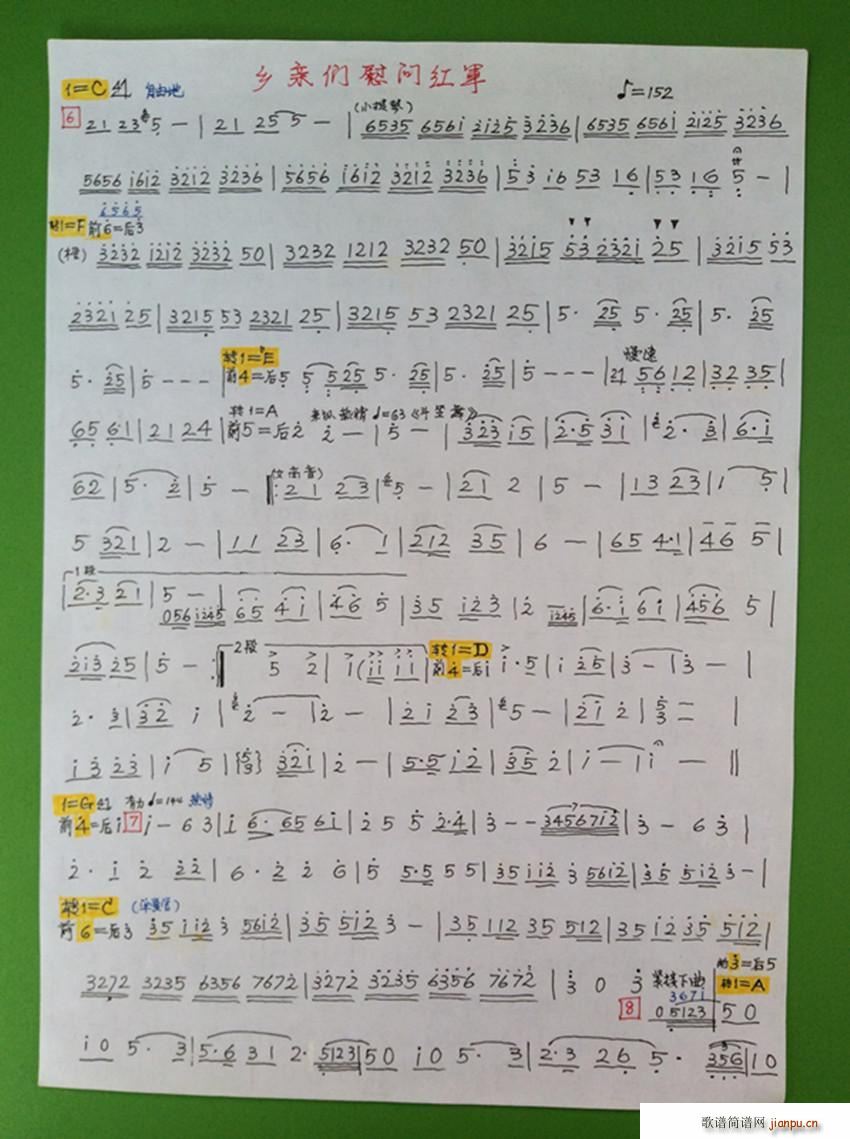 乡亲们慰问红軍
1=C 4/4 自由地 ♪=152
6 21 235 — | 21 255 — | (小提琴) 6535 656i 2i25 3236 | 6535 656i 2125 3236
5656 i6i2 32i2 3236 | 5656 i6i2 32i2 3236 | 53 i6 53 16 | 53 16 5 — |
转1=F 前6=后3 6565
3232 i2i2 3232 50 | 3232 1212 3232 50 | 32i5 53 232i 25 | 32i5 53
232i 25 | 3215 53 2321 25 | 3215 53 2321 25 | 5· 25 5· 25 | 5· 25
5· 25 | 5 - - - | 转1=♭E 前4=后5 5 525 5· 25 | 5· 25 | 5 - - - | 慢速 2/4 56 12 | 32 35 |
65 61 | 21 24 | 转1=A 前5=后2 2 — | 5 — | 323 i5 | 2·5 3i | 2· 3 | 6·i
热情 ♩=63
62 | 5· 2 | 5 — ‖: (女高音) 21 23 | 5 — | 21 2 | 5 — | 13 23 | 1 5 |
5 321 | 2 — | 11 23 | 6· 1 | 212 35 | 6 — | 65 4·1 | 46 5 |
1段
2·3 21 | 5 — | 056 i245 65 4i | 46 5 | 35 i23 | 2 i245 | 6·i 6i | 456 5 |
2i3 25 | 5 — :‖ 2段 5 2 | i (ii ii | 转1=D 前4=后i i·5 | i 25 | 3 — | 3 — |
2· 3 | 32 i | 2 — | 2 — | 2i 23 | 5 — | 2i 2 | 5/3 = |
i3 23 | i 5 | {5/3} 32i | 2 — | 5·5 i2 | 35 2 | i — | i — ‖
1=G 4/4 有力 ♩=144 热情
前4=后i 7 i — 6 3 | i 6· 65 6i | 2 5 5 2·4 | 3 - - 34567i2 | 3 — 6 3 |
2· i 2 22 | 6· 2 2 6 | 5 5·5 5 5 | 35 ii2 3 56i2 | 35 5i2 3 — |
转1=C
前6=后3 35 ii2 3 56i2 | 35 5i2 3 — | 35 112 35 512 | 35 i2 35 5i2 |
3272 3235 6356 7672 | 3272 3235 6356 7672 | 3 0 3 紧接下曲 前3=后5 转1=A
8 367i 05123 | 50
i0 5· 3 | 5·6 31 2· 5123 | 50 i0 5· 3 | 2·3 26 5· 356 | 10
歌谱简谱网 jianpu.cn